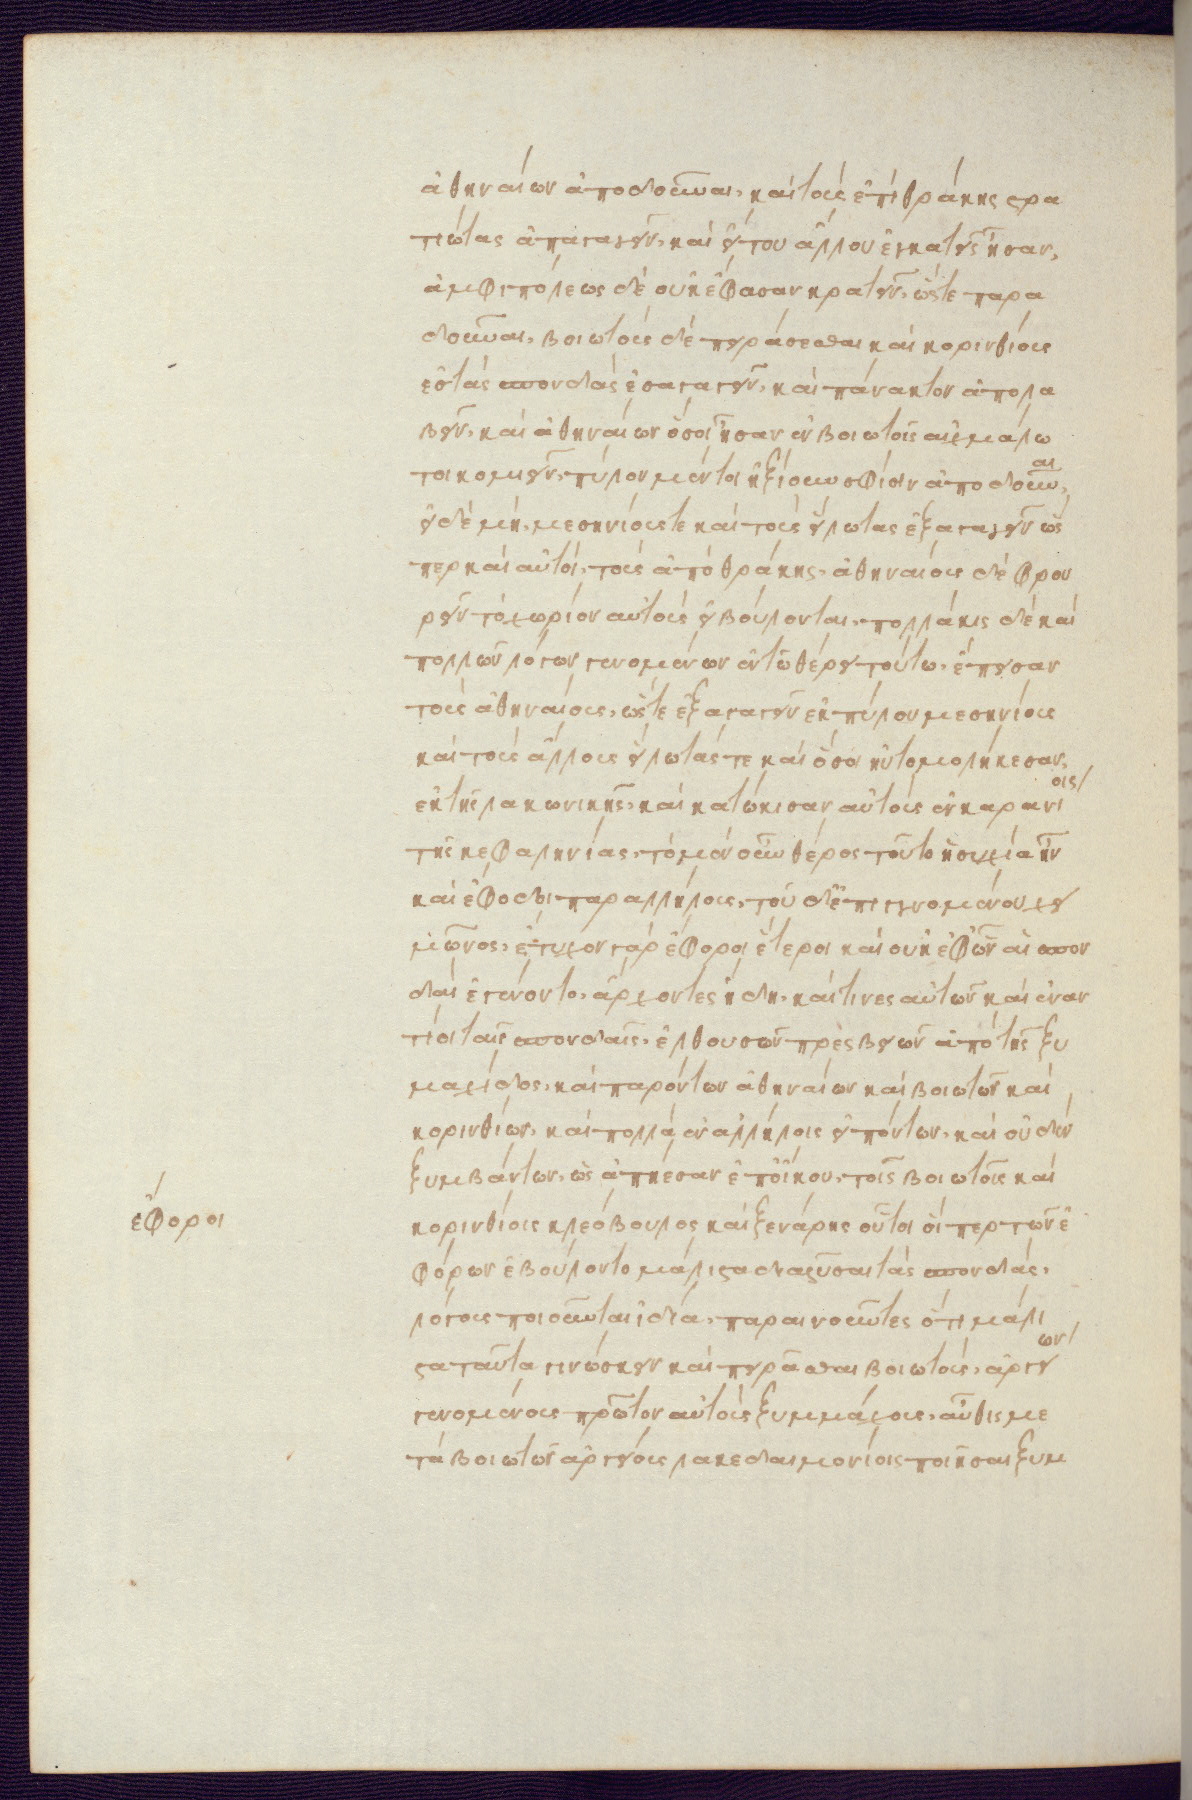 ἀθηναίων ἀποδοῦναι, καὶ τοὺς ἐπὶ θράκης στρα
τιώτας ἀπαγαγεῖν, καὶ εἴ του ἄλλου ἐγκατεῖς ἦσαν,
ἀμφιπόλεως δὲ οὐκ ἔφασαν κρατεῖν, ὥστε παρα
δοῦναι, βοιωτοὺς δὲ πειράσεσθαι καὶ κορινθίους
ἐς τὰς σπονδὰς ἐσαγαγεῖν, καὶ πάνακτον ἀπολα
βεῖν, καὶ ἀθηναίων ὅσοι ἦσαν ἐν βοιωτοῖς αἰχμάλω
τοι κομιεῖν, πύλον μέντοι ἠξίουν σφίσιν ἀποδοῦναι,
εἰ δὲ μὴ, μεσηνίους τε καὶ τοὺς εἵλωτας ἐξαγαγεῖν ὥς
περ καὶ αὐτοὶ, τοὺς ἀπὸ θράκης, ἀθηναίους δὲ φρου
ρεῖν τὸ χωρίον αὐτοὺς εἰ βούλονται, πολλάκις δὲ καὶ
πολλῶν λόγων γενομένων ἐν τῷ θέρει τούτω, ἔπεισαν
τοὺς ἀθηναίους, ὥστε ἐξαγαγεῖν ἐκ πύλου μεσηνίους
καὶ τοὺς ἄλλους εἵλωτάς τε καὶ ὅσοι ηὐτομολήκεσαν,
ἐκ τῆς λακωνικῆς, καὶ κατώκισαν αὐτοὺς ἐν καρανίοις
τῆς κεφαληνίας, τὸ μὲν οὖν θέρος τοῦτο ἡσυχία ἦν
καὶ ἔφοδοι παρ ἀλλήλους, τοῦ δ ἐπιγινομένου χει
μῶνος, ἔτυχον γὰρ ἔφοροι ἕτεροι καὶ οὐκ ἐφ ὧν αἱ σπον
δαὶ ἐγένοντο, ἄρχοντες ἤδη, καί τινες αὐτῶν καὶ ἐναν
τίοι ταῖς σπονδαῖς, ἐλθουσῶν πρεσβειῶν ἀπὸ τῆς ξυ
μαχίδος, καὶ παρόντων ἀθηναίων καὶ βοιωτῶν καὶ
κορινθίων, καὶ πολλὰ ἐν ἀλλήλοις εἰπόντων, καὶ οὐδὲν
ξυμβάντων, ὡς ἀπῄεσαν ἐπ οἴκου, τοῖς βοιωτοῖς καὶ
ἔφοροι
κορινθίοις κλεόβουλος καὶ ξενάρης οὗτοι οἵπερ τῶν ἐ
φόρων ἐβούλοντο μάλιστα διαλῦσαι τὰς σπονδὰς,
λόγους ποιοῦνται ἰδίᾳ, παραινοῦντες ὅτι μάλι
στα ταῦτα γινώσκειν καὶ πειρᾶσθαι βοιωτοὺς, ἀργείων
γενομένους πρῶτον αὐτοὺς ξυμμάχους, αὖθις με
τὰ βοιωτῶν ἀργείους λακεδαιμονίοις ποιῆσαι ξυμ